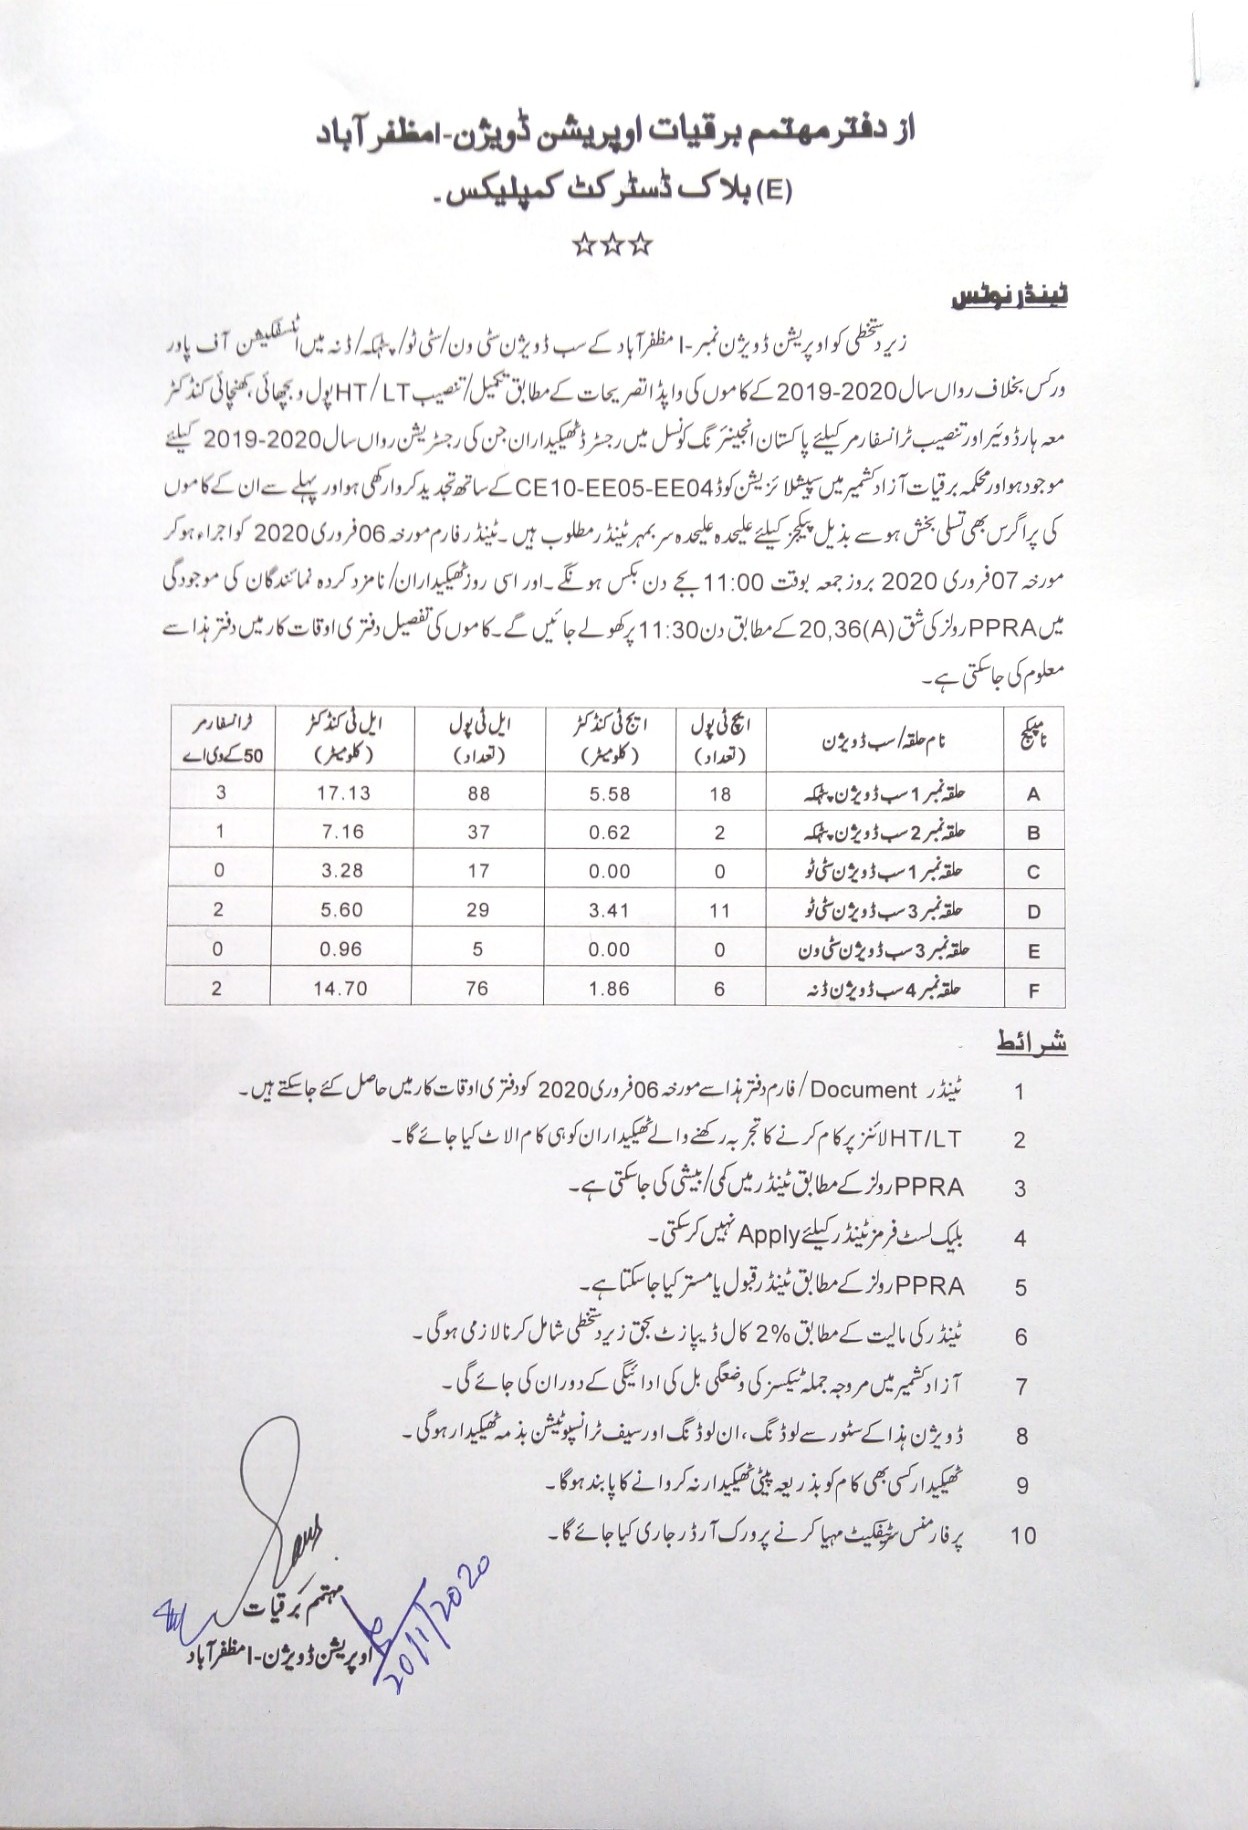 از دفتر مہتمم برقیات اوپریشن ڈویژن-I مظفر آباد
(E) بلاک ڈسٹرکٹ کمپلیکس۔
☆☆☆
ٹینڈر نوٹس
زیر دستخطی کو اوپریشن ڈویژن نمبر-I مظفر آباد کے سب ڈویژن سٹی ون/سٹی ٹو/پٹہکہ/ڈنہ میں انٹنسفکیشن آف پاور
ورکس بخلاف رواں سال 2020-2019 کے کاموں کی واپڈا تصریحات کے مطابق تکمیل/تنصیب HT/LT پول و بچھائی، کھنچائی کنڈکٹر
معہ ہارڈ ویئر اور تنصیب ٹرانسفارمر کیلئے پاکستان انجینئرنگ کونسل میں رجسٹرڈ ٹھیکیداران جن کی رجسٹریشن رواں سال 2020-2019 کیلئے
موجود ہو اور محکمہ برقیات آزاد کشمیر میں سپیشلائزیشن کوڈ CE10-EE05-EE04 کے ساتھ تجدید کروا رکھی ہو اور پہلے سے ان کے کاموں
کی پراگرس بھی تسلی بخش ہو سے بذیل پیکجز کیلئے علیحدہ علیحدہ سر بمہر ٹینڈر مطلوب ہیں۔ ٹینڈر فارم مورخہ 06 فروری 2020 کو اجراء ہو کر
مورخہ 07 فروری 2020 بروز جمعہ بوقت 11:00 بجے دن بکس ہونگے۔ اور اسی روز ٹھیکیداران/نامزد کردہ نمائندگان کی موجودگی
میں PPRA رولز کی شق 20,36(A) کے مطابق دن 11:30 پر کھولے جائیں گے۔ کاموں کی تفصیل دفتری اوقات کار میں دفتر ہذا سے
معلوم کی جا سکتی ہے۔
نام پیکیج | نام حلقہ/سب ڈویژن | ایچ ٹی پول (تعداد) | ایچ ٹی کنڈکٹر (کلومیٹر) | ایل ٹی پول (تعداد) | ایل ٹی کنڈکٹر (کلومیٹر) | ٹرانسفارمر 50 کے وی اے
A | حلقہ نمبر 1 سب ڈویژن پٹہکہ | 18 | 5.58 | 88 | 17.13 | 3
B | حلقہ نمبر 2 سب ڈویژن پٹہکہ | 2 | 0.62 | 37 | 7.16 | 1
C | حلقہ نمبر 1 سب ڈویژن سٹی ٹو | 0 | 0.00 | 17 | 3.28 | 0
D | حلقہ نمبر 3 سب ڈویژن سٹی ٹو | 11 | 3.41 | 29 | 5.60 | 2
E | حلقہ نمبر 3 سب ڈویژن سٹی ون | 0 | 0.00 | 5 | 0.96 | 0
F | حلقہ نمبر 4 سب ڈویژن ڈنہ | 6 | 1.86 | 76 | 14.70 | 2
شرائط
1 ٹینڈر Document/فارم دفتر ہذا سے مورخہ 06 فروری 2020 کو دفتری اوقات کار میں حاصل کئے جا سکتے ہیں۔
2 HT/LT لائنز پر کام کرنے کا تجربہ رکھنے والے ٹھیکیداران کو ہی کام الاٹ کیا جائے گا۔
3 PPRA رولز کے مطابق ٹینڈر میں کمی/بیشی کی جا سکتی ہے۔
4 بلیک لسٹ فرمز ٹینڈر کیلئے Apply نہیں کر سکتی۔
5 PPRA رولز کے مطابق ٹینڈر قبول یا مستر کیا جا سکتا ہے۔
6 ٹینڈر کی مالیت کے مطابق 2% کال ڈیپازٹ بحق زیر دستخطی شامل کرنا لازمی ہو گی۔
7 آزاد کشمیر میں مروجہ جملہ ٹیکسز کی وضعگی بل کی ادائیگی کے دوران کی جائے گی۔
8 ڈویژن ہذا کے سٹور سے لوڈنگ، ان لوڈنگ اور سیف ٹرانسپوٹیشن بذمہ ٹھیکیدار ہو گی۔
9 ٹھیکیدار کسی بھی کام کو بذریعہ پیٹی ٹھیکیدار نہ کروانے کا پابند ہوگا۔
10 پرفارمنس سرٹیفکیٹ مہیا کرنے پر ورک آرڈر جاری کیا جائے گا۔
مہتمم برقیات
اوپریشن ڈویژن-I مظفر آباد
20/1/2020